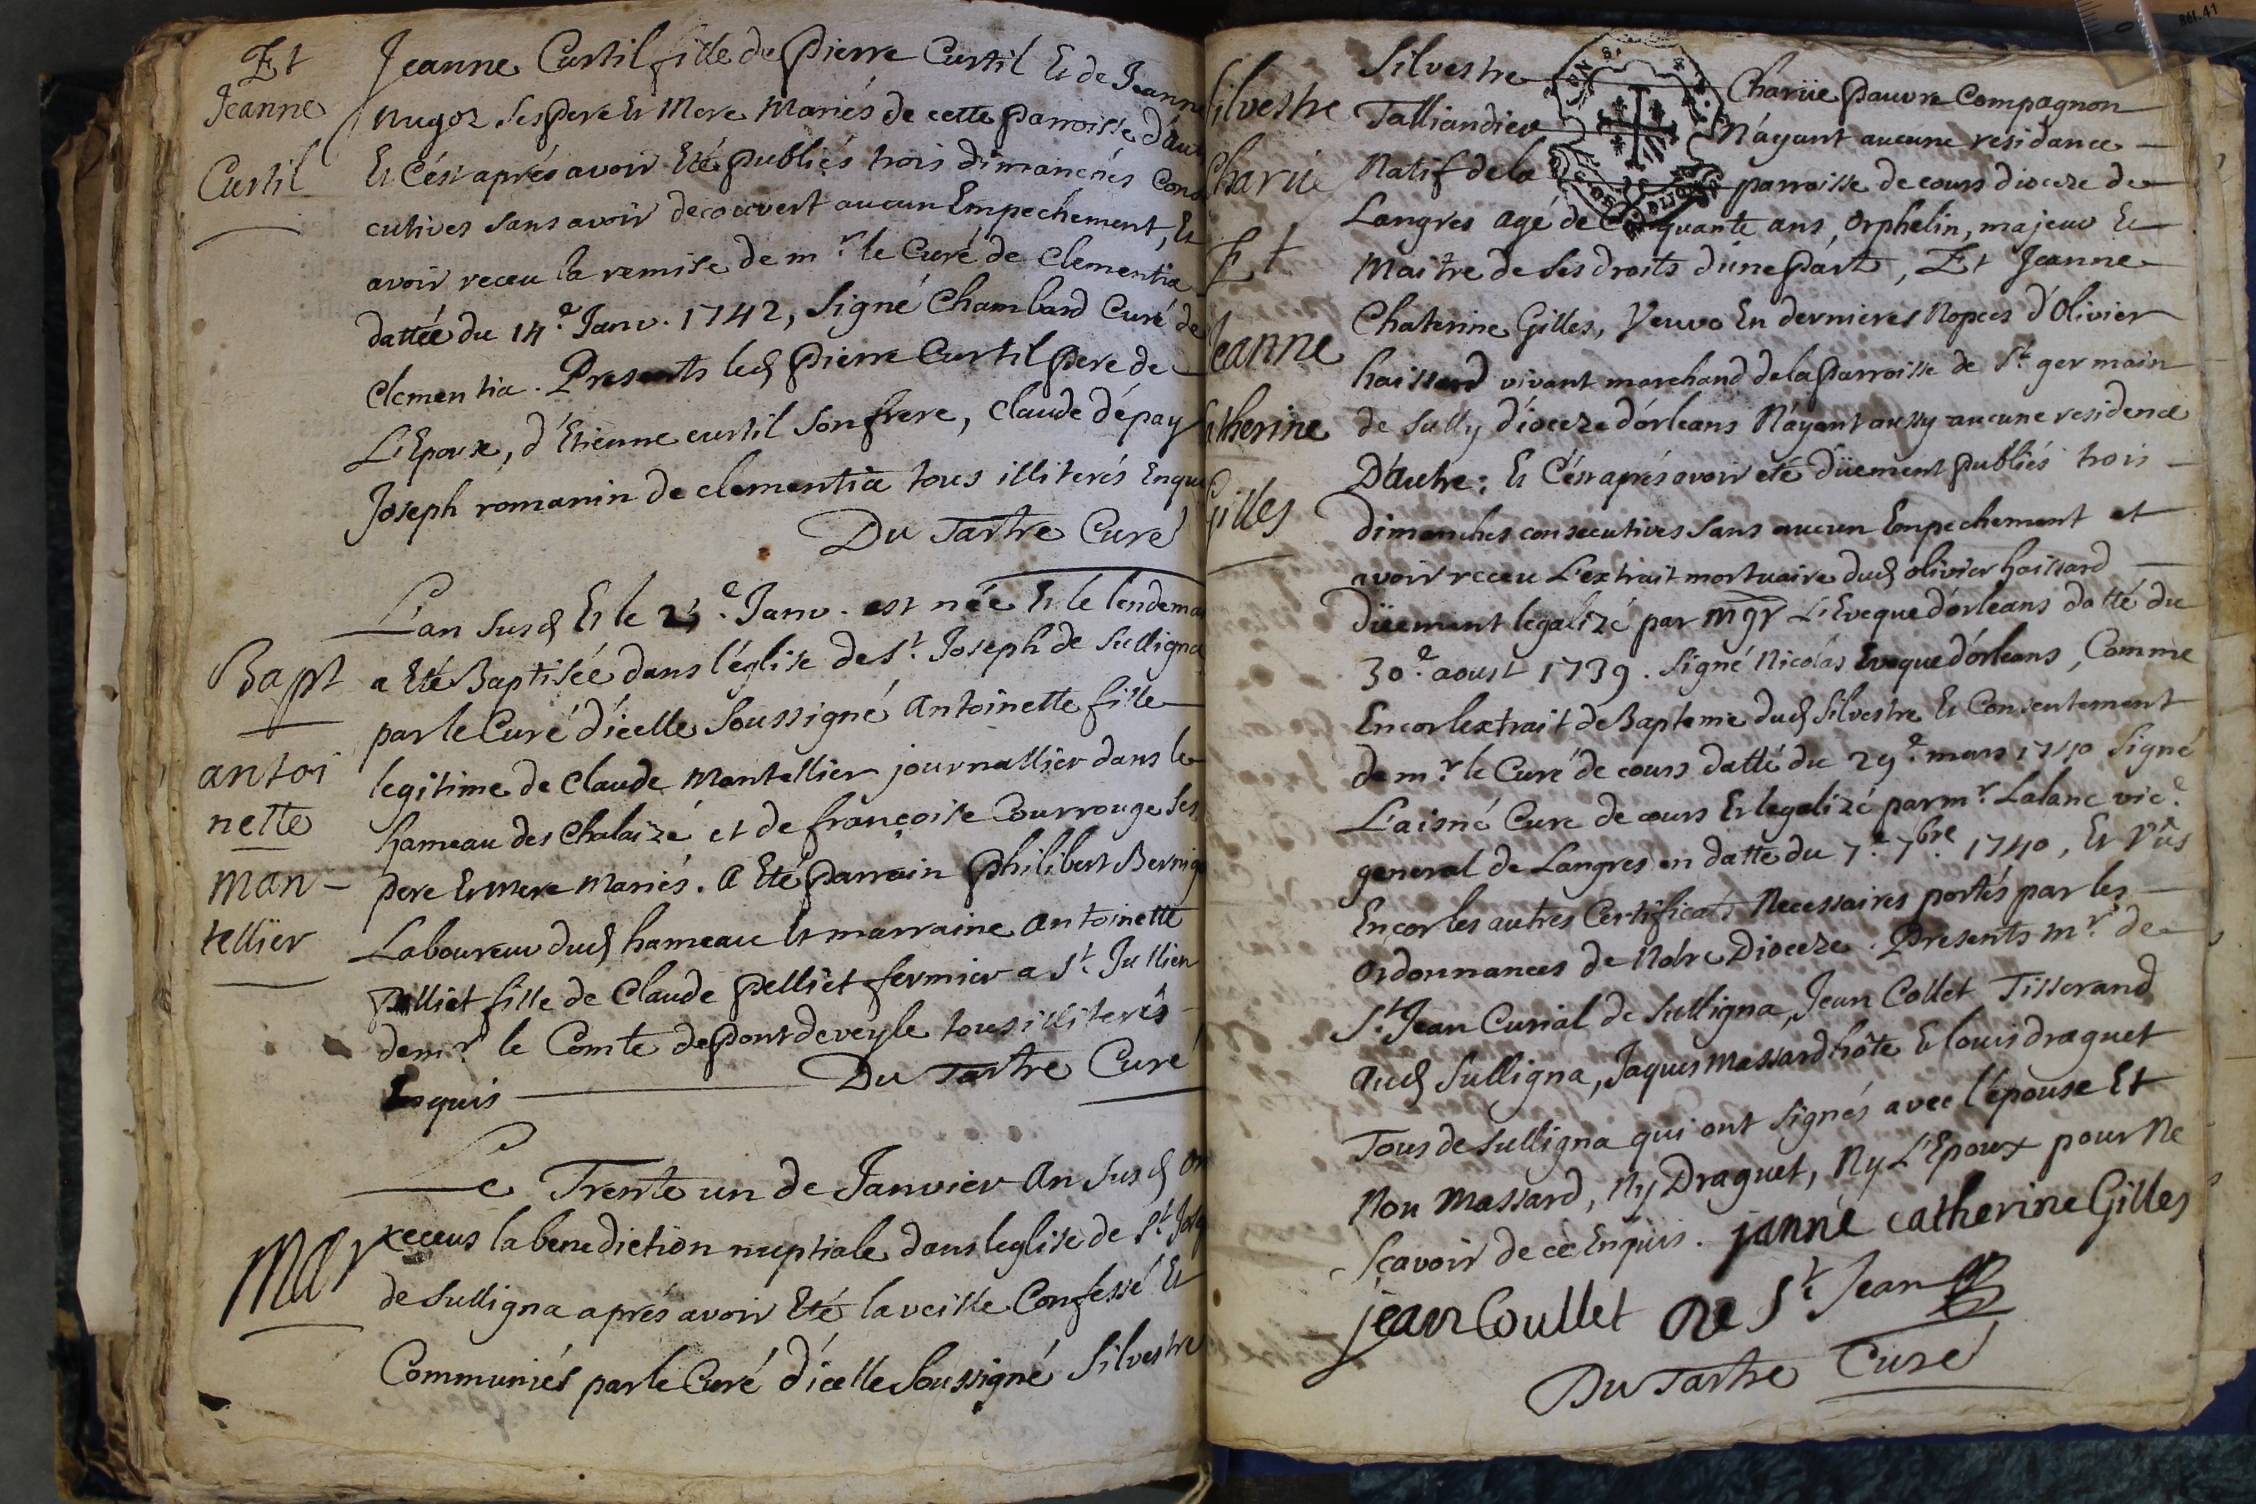 Et
Jeanne
Curtil
Jeanne Curtil fille de Pierre Curtil Et de Jeanne
Nugoz Ses Pere Et Mere Mariés de cette Parroisse d'au
Et C'ést aprés avoir Eté Publiés trois dimanchés Cons
cutives sans avoir decouvert aucun Empechement, Et
avoir receu la remise de mr. le Curé de Clementia
dattée du 14e. Janv. 1742, Signé Chambard Curé de
Clementia. Presents led Pierre Curtil Pere de
L'Epouse, d'Etienne curtil Son frere, Claude dépay
Joseph romanin de clementia tous illiterés Enqu
Du Tartre Curé
Bapt
antoi
nette
man-
tellier
L'an Susd Et le 23e. Janv. est née Et le lendema
a Eté Baptisée dans l'église de St. Joseph de Sulligna
par le Curé d'icelle Soussigné Antoinette fille
legitime de Claude Mantellier journallier dans le
hameau des Chalaizé et de françoise Courrouge Ses
pere Et mere Mariés. A Eté Parrain Philibert Bernig
Laboureur dud hameau Et marraine Antoinette
Pelliet fille de Claude Pelliet fermier a St. Jullien
de mr. le Comte de Pontdeveyle tous illiterés
Enquis Du Tartre Curé
Mar
Le Trente un de Janvier An Susd On
receus la benediction nuptiale dans leglise de St. Jos
de Sulligna aprés avoir Eté la veille Confessé Et
Communiés par le Curé d'icelle Soussigné Silvestre
Silvestre
Charüe
Et
Jeanne
Catherine
Gilles
Silvestre Charüe Pauvre Compagnon
Talliandier N'ayant aucune residance
Natif de la parroisse de cours dioceze de
Langres agé de Cinquante ans, Orphelin, majeur Et
Maitre de Ses droits d'une Part, Et Jeanne
Chaterine Gilles, Veuve En dernieres Nopces d'Olivier
haissard vivant marchand de la Parroisse de St. germain
de Sully d'ioceze d'orleans N'ayant aussy aucune residence
D'autre; Et C'ést aprés avoir eté düement Publiés trois
dimanches consecutives Sans aucun Empechement et
avoir receu L'extrait mortuaire dud olivier haissard
Düement legalizé par mgr L'Eveque d'orleans datté du
30e. aoust 1739. Signé Nicolas Eveque d'orleans, Comme
Encor lextrait de Bapteme dud Silvestre Et Consentement
de mr. le Curé de cours datté du 29e. mars 1740 Signé
L'aisné Curé de cours Et legalizé par mr. Lalanc vic.
general de Langres en datte du 7e. 7bre. 1740, Et Vûs
Encor les autres Certificats Necessaires portés par les
Ordonnances de Notre Dioceze. Presents mr. de
St. Jean Curial de Sulligna, Jean Collet Tisserand
Aud Sulligna, Jaques Massard hôte Et louis draguet
Tous de Sulligna qui ont Signés avec l'épouse Et
Non Massard, Ny Draguet, Ny L'Epoux pour Ne
Sçavoir de ce Enquis. janne catherine Gilles
jean Coullet De St. Jean
Du Tartre Curé